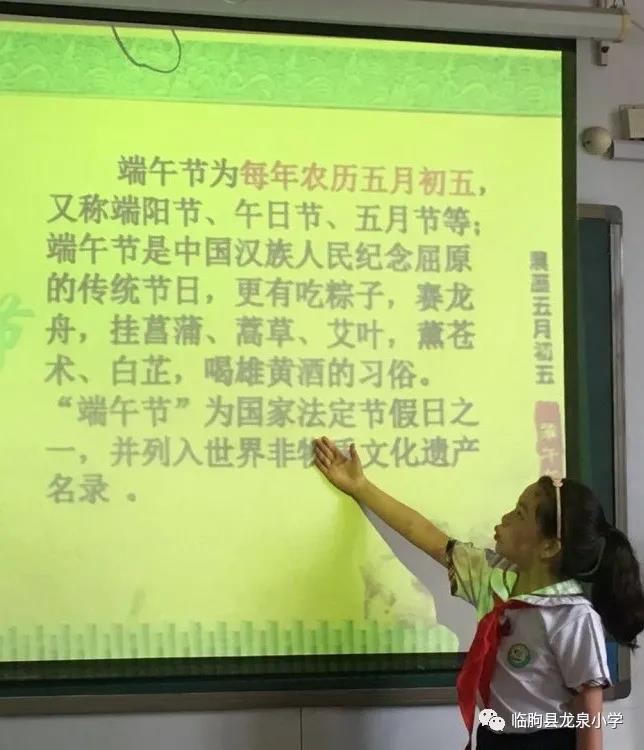 端午节为每年农历五月初五，
又称端阳节、午日节、五月节等；
端午节是中国汉族人民纪念屈原
的传统节日，更有吃粽子，赛龙
舟，挂菖蒲、蒿草、艾叶，薰苍
术、白芷，喝雄黄酒的习俗。
“端午节”为国家法定节假日之
一，并列入世界非物质文化遗产
名录 。
农历五月初五
端午
节
临朐县龙泉小学